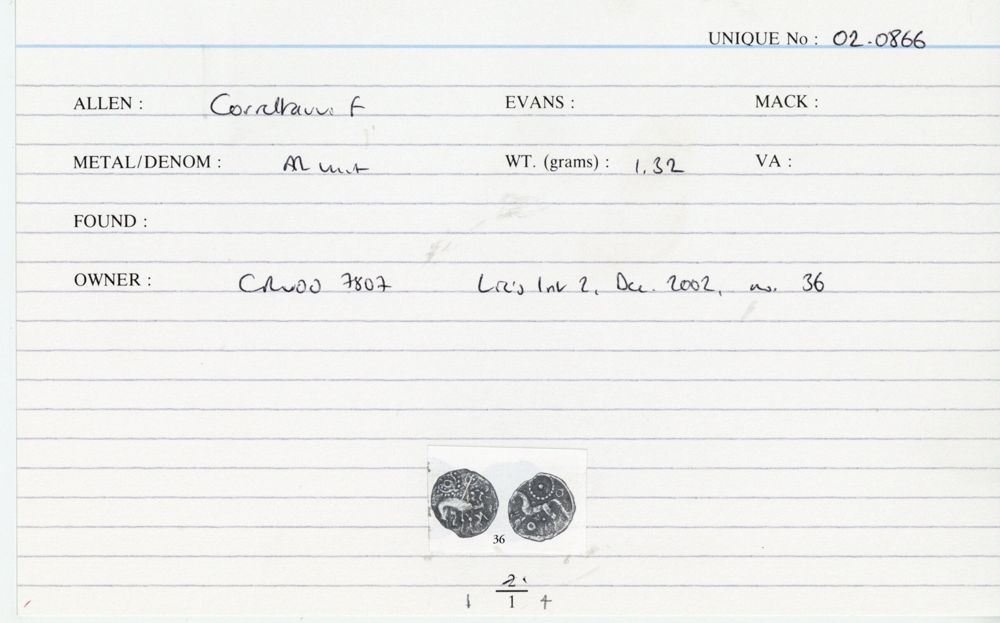 UNIQUE No : 02-0866
ALLEN : F EVANS : MACK :
METAL/DENOM : AR unit WT. (grams) : 1.32 VA :
FOUND :
OWNER : 7807 Inv 2, Dec. 2002, no. 36
36
2
1